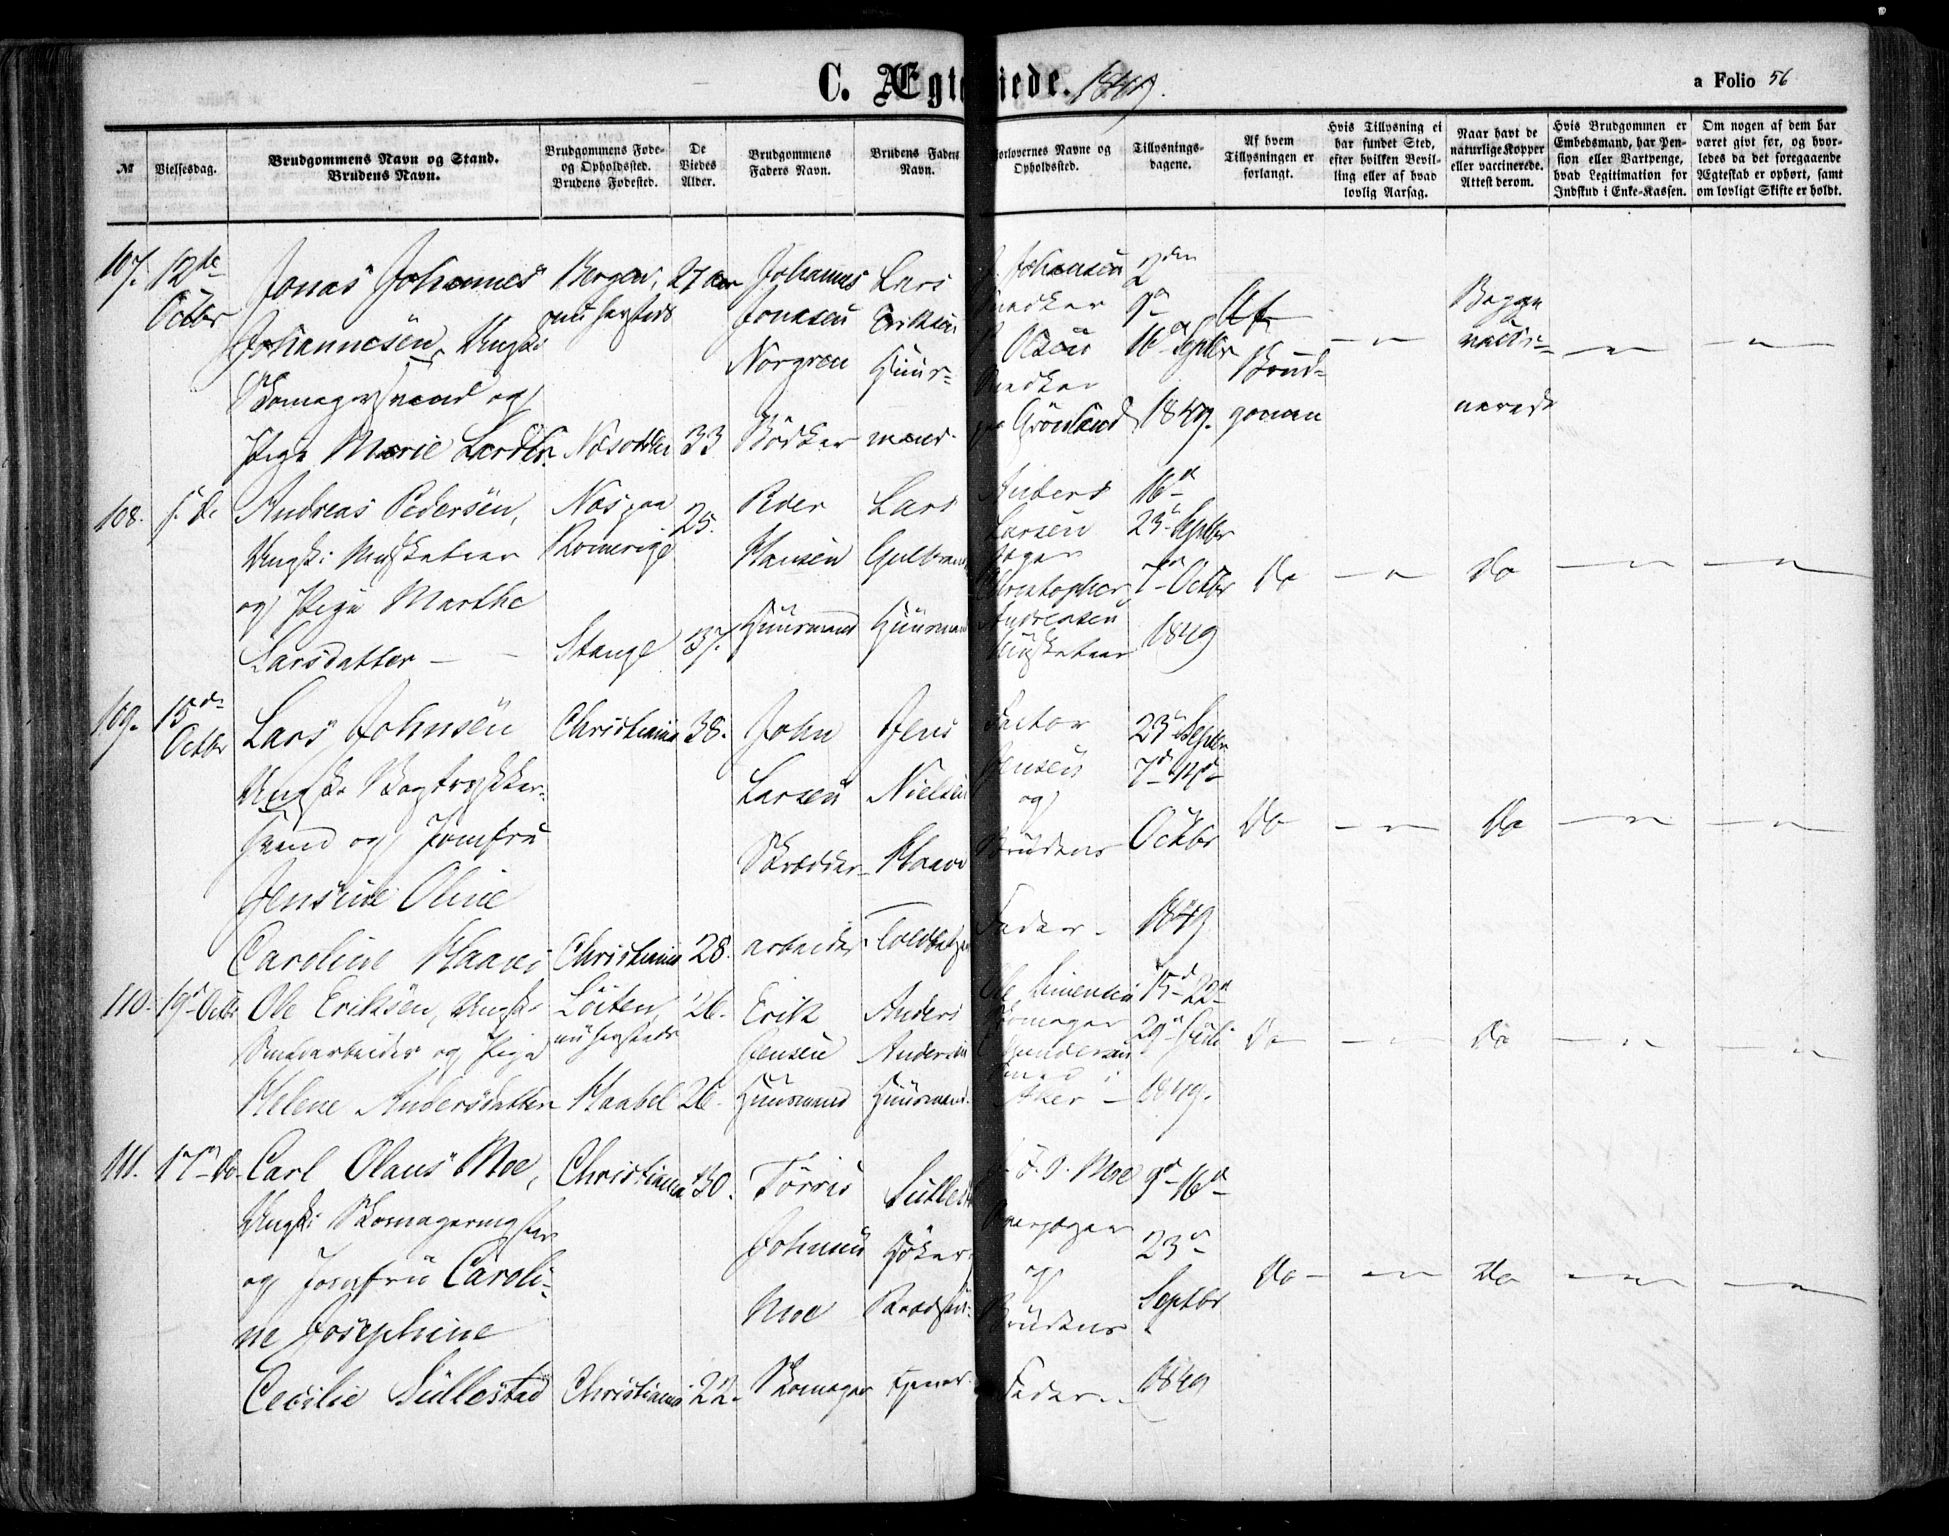 C. Ægte iede. 1849.
a Folio 56
№
Vielsesdag.
Brudgommens Navn og Stand.
Brudens Navn.
Brudgommens Føde-
og Opholdssted.
Brudens Fødested.
De
Viedes
Alder.
Brudgommens
Faders Navn.
Brudens Faders
Navn.
orlovernes Navne og
Opholdssted.
Tillysnings-
dagene.
Af hvem
Tillysningen er
forlangt.
Hvis Tillysning ei
har fundet Sted,
efter hvilken Bevil-
ling eller af hvad
lovlig Aarsag.
Naar havt de
naturlige Kopper
eller vaccinerede.
Attest derom.
Hvis Brudgommen er
Embedsmand, har Pen-
sion eller Vartpenge,
hvad Legitimation for
Indskud i Enke-Kassen.
Om nogen af dem har
været gift før, og hvor-
ledes da det foregaaende
Ægteskab er ophørt, samt
om lovligt Skifte er holdt.
107.
12te
Octbr
Jonas Johannes
Johannesen, Ungk.
Skomagersvend og
Pige Marie Larsdtr.
Bergen,
nu hersteds
Næsodden
27 aar
33
Johannes
Jonasen
Norgren
Bødker
Lars
Eriksen
Huus-
mand.
Johansen
Snedker
Olsen
Snedker
paa Grønland
2den
9de
16de Septbr
1849.
Af
Brud-
gomen
Begge
vacci-
nerede
108.
Andreas Pedersen,
Ungk. Musketeer
og Pige Marthe
Larsdatter
Næs paa
Romerige
Stange
25.
37.
Peder
Hansen
Huusmand
Lars
Gulbrands
Huusmand
Anders
Larsen
Jæger
Christopher
Andreasen
Musketeer
16d
23d Septbr
7de Octbr
1849
Do
Do
109.
15de
Octbr
Lars Johnsen
Ungk. Bogtrykker-
svend og Jomfru
Jensine Oline
Caroline Haave
Christiania
Christiania
38.
28.
John
Larsen
Skrædder-
arbeider.
Jens
Nielsen
Haave
Factor
Jensen
og
Brudens
Fader.
23d Septbr
7d 14d
Octbr
1849
Do
Do
110.
19d Octbr
Ole Eriksen, Ungk.
Smedarbeider og Pige
Helene Andersdatter
Løiten,
nu hersteds
Haabøl
26.
26.
Erik
Jensen
Huusmand
Anders
Andersen
Huusmand.
Ole Simensen
Skomager
Smed i
Aker
15d 22d
29d Juli
1849.
Do
Do
111.
17d Do
Carl Olaus Moe,
Ungk. Skomagermester
og Jomfru Caroli-
ne Josephine
Cecilie Sullestad
Christiania
Christiania
30.
22.
Torris
Johnsen
Moe
Skomager
Sullestad
Høker,
Raadstue-
tjener.
Moe
og
Brudens
Fader.
9d 16d
23d
Septbr
1849
Do
Do